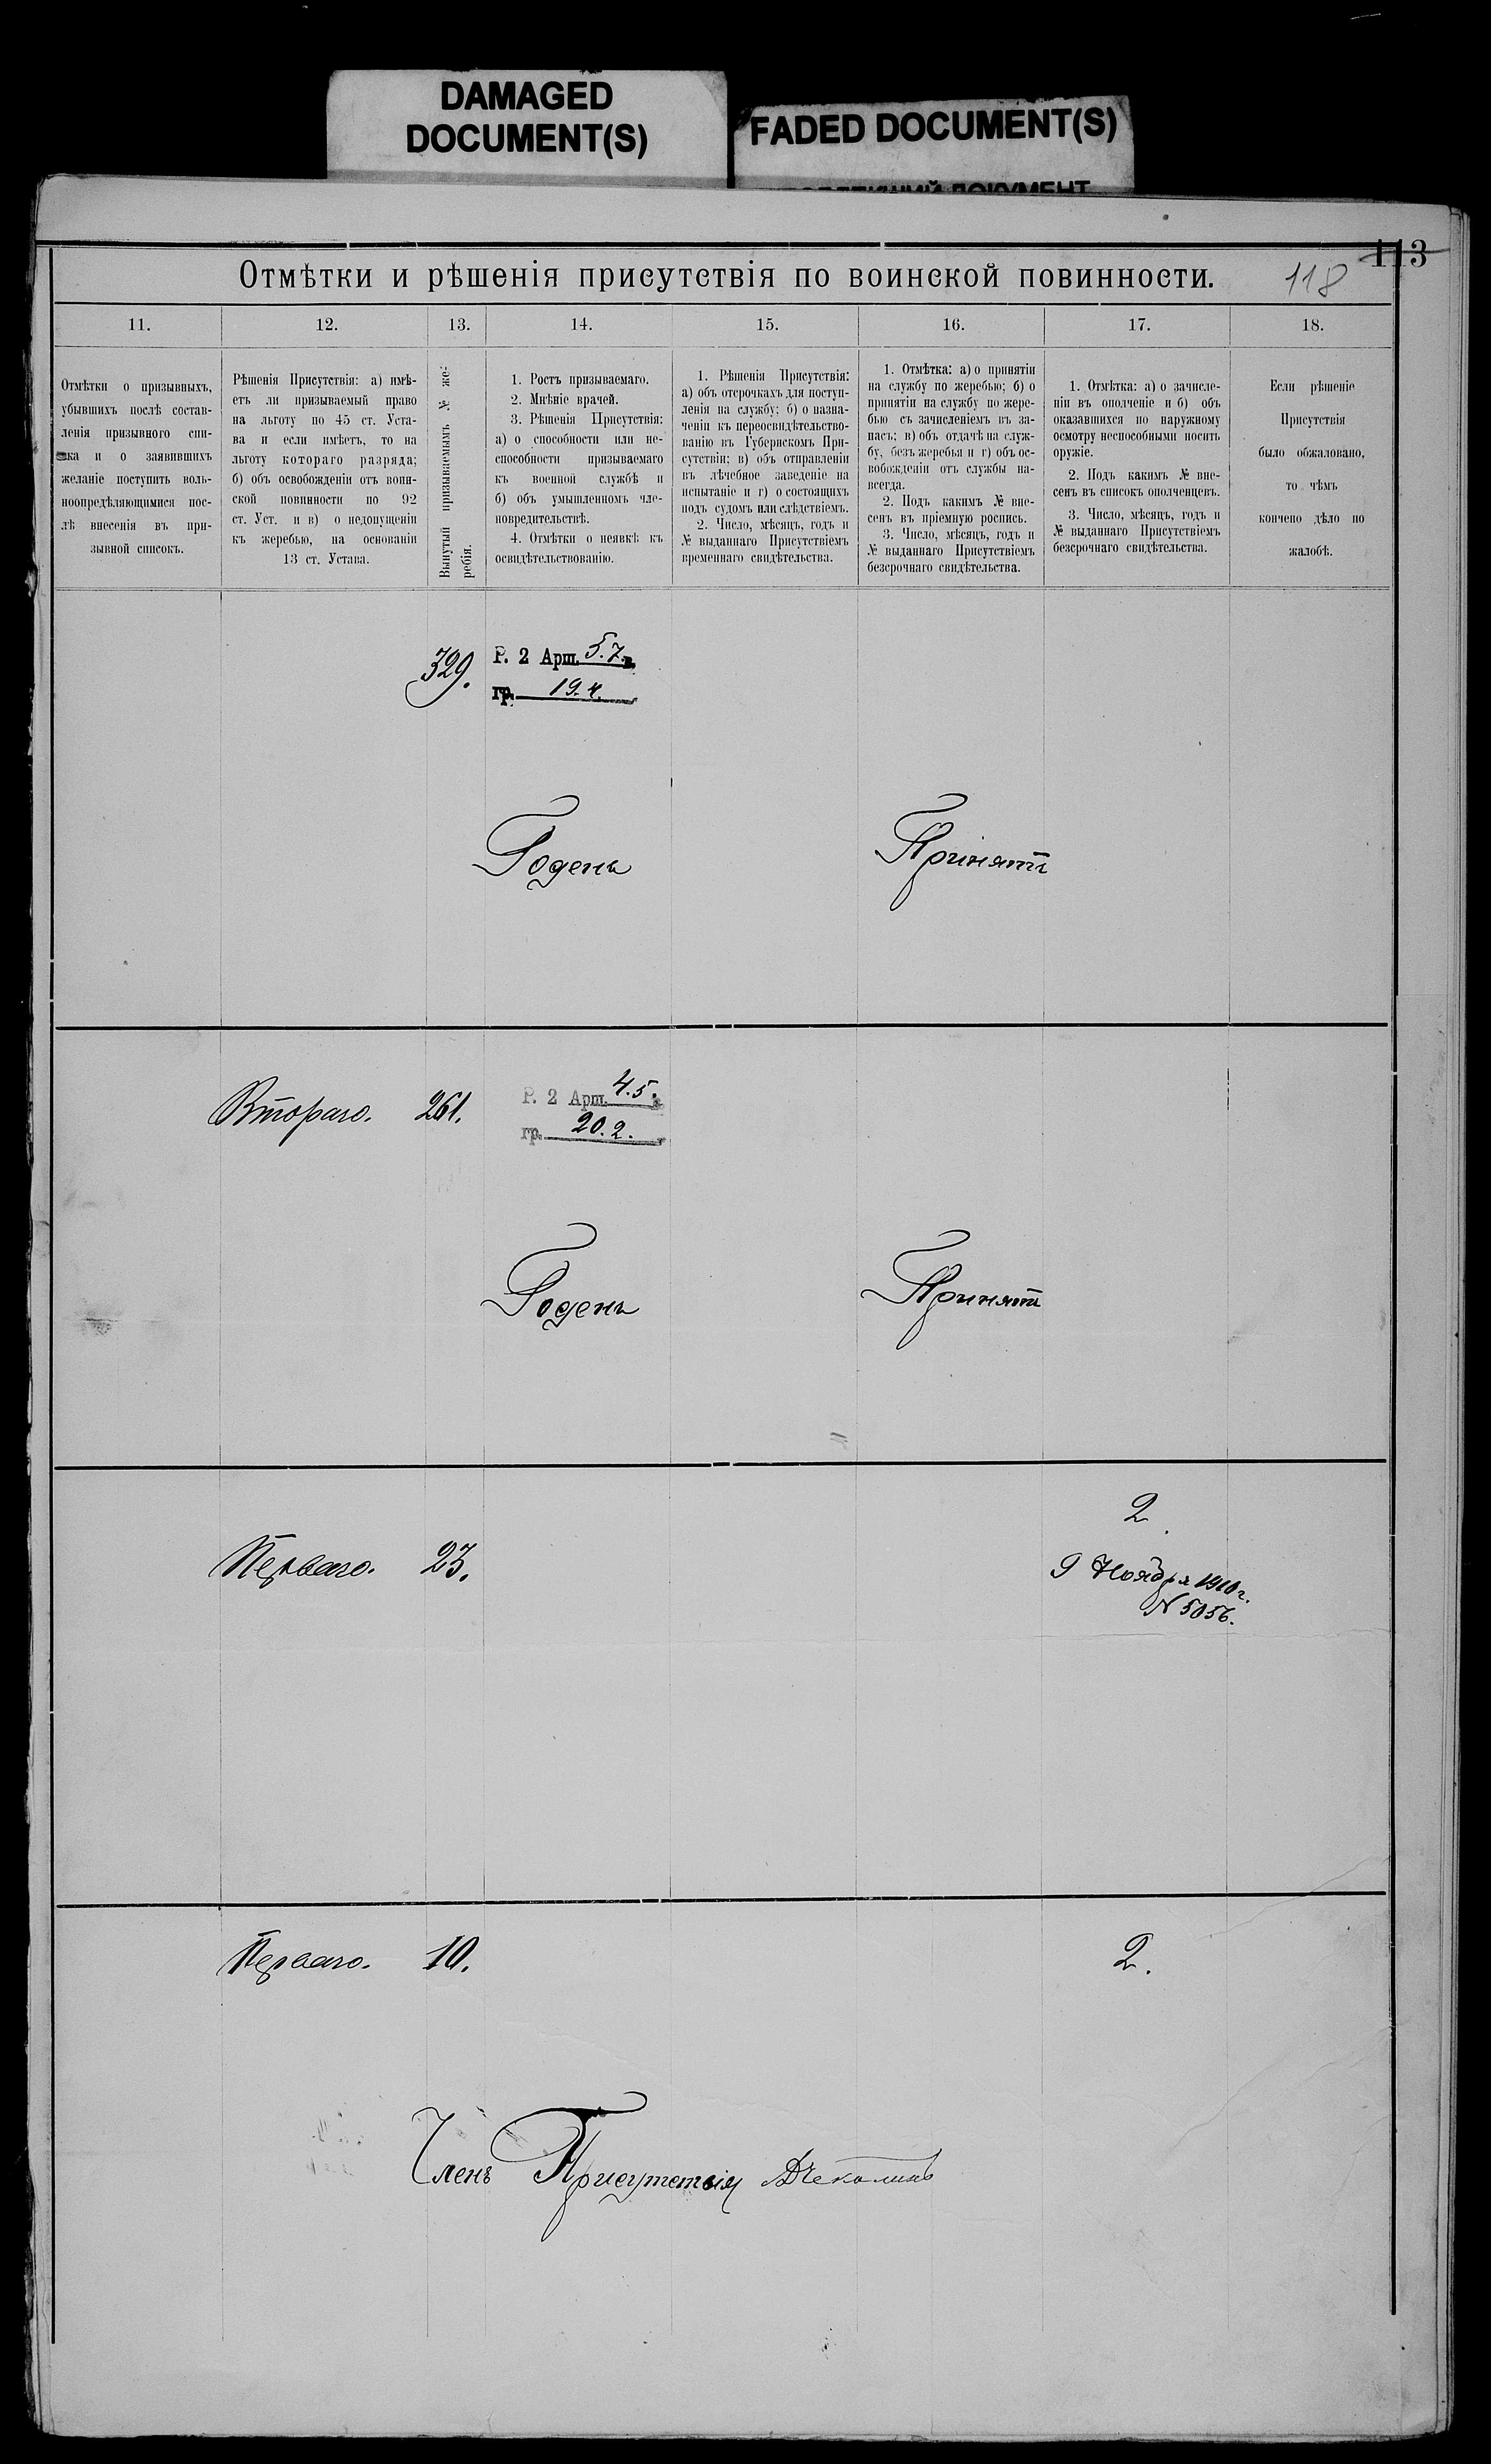 DAMAGED
DOCUMENT(S)
FADED DOCUMENT(S)
113
Отмѣтки и рѣшенія присутствія по воинской повинности.
118
11.
12.
13.
14.
15.
16.
17.
18.
Отмѣтки о призывныхъ,
убывшихъ послѣ состав-
ленія призывного спи-
ска и о заявившихъ
желаніе поступить воль-
ноопредѣляющимися пос-
лѣ внесенія въ при-
зывной списокъ.
Рѣшенія Присутствія: а) имѣ-
етъ ли призываемый право
на льготу по 45 ст. Уста-
ва и если имѣетъ, то на
льготу котораго разряда;
б) объ освобожденіи отъ воин-
ской повинности по 92
ст. Уст. и в) о недопущеніи
къ жеребью, на основаніи
13 ст. Устава.
Вынутый призываемымъ № же-
ребія.
1. Ростъ призываемаго.
2. Мнѣніе врачей.
3. Рѣшенія Присутствія:
а) о способности или не-
способности призываемаго
къ военной службѣ и
б) объ умышленномъ чле-
новредительствѣ.
4. Отмѣтки о неявкѣ къ
освидѣтельствованію.
1. Рѣшенія Присутствія:
а) объ отсрочкахъ для поступ-
ленія на службу; б) о назна-
ченіи къ переосвидѣтельство-
ванію въ Губернскомъ При-
сутствіи; в) объ отправленіи
въ лѣчебное заведеніе на
испытаніе и г) о состоящихъ
подъ судомъ или слѣдствіемъ.
2. Число, мѣсяцъ, годъ и
№ выданнаго Присутствіемъ
временнаго свидѣтельства.
1. Отмѣтка: а) о принятіи
на службу по жеребью; б) о
принятіи на службу по жере-
бью съ зачисленіемъ въ за-
пасъ; в) объ отдачѣ на служ-
бу, безъ жеребья и г) объ ос-
вобожденіи отъ службы на-
всегда.
2. Подъ какимъ № вне-
сенъ въ пріемную роспись.
3. Число, мѣсяцъ, годъ и
№ выданнаго Присутствіемъ
безсрочнаго свидѣтельства.
1. Отмѣтка: а) о зачисле-
ніи въ ополченіе и б) объ
оказавшихся по наружному
осмотру неспособными носить
оружіе.
2. Подъ какимъ № вне-
сенъ въ списокъ ополченцевъ.
3. Число, мѣсяцъ, годъ и
№ выданнаго Присутствіемъ
безсрочнаго свидѣтельства.
Если рѣшеніе
Присутствія
было обжаловано,
то чѣмъ
кончено дѣло по
жалобѣ.
329.
Р. 2 Арш. 5.7. в.
гр. 19.4.
Годенъ
Принятъ
Втораго.
261.
Р. 2 Арш. 4.5. в.
гр. 20.2.
Годенъ
Принятъ
Перваго.
23.
2.
9 Ноября 1910 г.
N 5056.
Перваго.
10.
2.
Членъ Присутствія